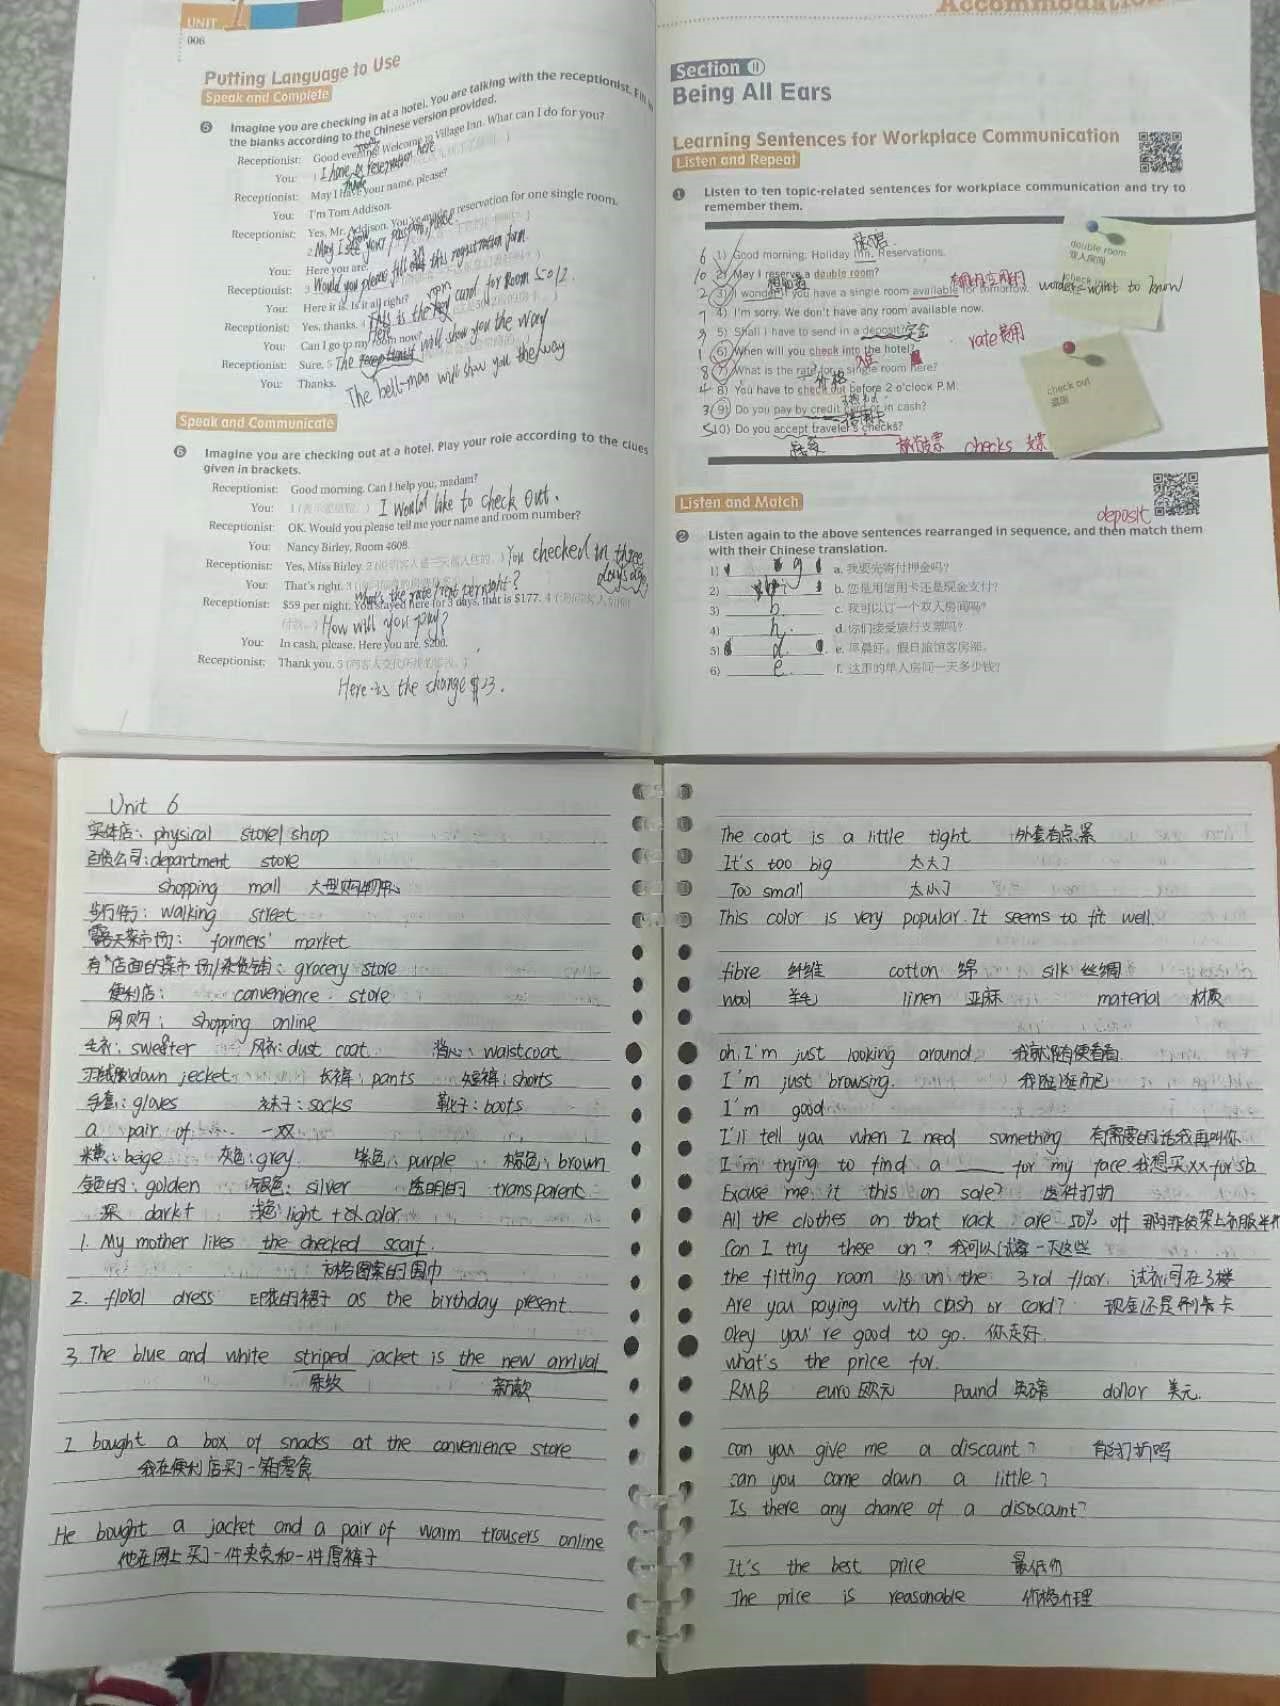 UNIT
006
Putting Language to Use
Speak and Complete
5 Imagine you are checking in at a hotel. You are talking with the receptionist. Fill in
the blanks according to the Chinese version provided.
Receptionist: Good evening. Welcome to Village Inn. What can I do for you?
You: 1 I have a reservation here
Receptionist: May I have your name, please?
You: I'm Tom Addison.
Receptionist: Yes, Mr. Addison. You've made a reservation for one single room.
2 May I see your passport, please.
You: Here you are.
Receptionist: 3 Would you please fill out this registration form
You: Here it is. Is it all right?
Receptionist: Yes, thanks. 4 This is the key card for Room 5012.
You: Can I go to my room now?
Receptionist: Sure. 5 The receptionist will show you the way
You: Thanks.
The bell-man will show you the way
Speak and Communicate
6 Imagine you are checking out at a hotel. Play your role according to the clues
given in brackets.
Receptionist: Good morning. Can I help you, madam?
You: 1 I would like to check out.
Receptionist: OK. Would you please tell me your name and room number?
You: Nancy Birley, Room 4608.
Receptionist: Yes, Miss Birley. 2 You checked in three days ago
You: That's right. 3 What's the rate/rent per night?
Receptionist: $59 per night. You stayed here for 3 days, that is $177. 4
How will you pay?
You: In cash, please. Here you are. $200.
Receptionist: Thank you. 5
Here is the change $23.
Accommodation
Section II
Being All Ears
Learning Sentences for Workplace Communication
Listen and Repeat
1 Listen to ten topic-related sentences for workplace communication and try to
remember them.
6 1) Good morning. Holiday Inn. Reservations.
10 2) May I reserve a double room?
2 3) I wonder if you have a single room available for tomorrow. wonder = want to know
7 4) I'm sorry. We don't have any room available now.
9 5) Shall I have to send in a deposit? 定金
1 6) When will you check into the hotel? rate 费用
8 7) What is the rate for a single room here?
价格
4 8) You have to check out before 2 o'clock P.M.
3 9) Do you pay by credit card or in cash?
信用卡
5 10) Do you accept traveler's checks?
接受 旅行支票 checks 支票
double room
双人房间
check out
退房
Listen and Match
deposit
2 Listen again to the above sentences rearranged in sequence, and then match them
with their Chinese translation.
1) g a. 我要先寄付押金吗?
2) b. 您是用信用卡还是现金支付?
3) b c. 我可以订一个双人房间吗?
4) h d. 你们接受旅行支票吗?
5) d e. 早晨好。假日旅馆客房部。
6) e f. 这里的单人房间一天多少钱?
Unit 6
实体店: physical store/shop
百货公司: department store
shopping mall 大型购物中心
步行街: walking street
露天菜市场: farmers' market
有店面的菜市场/杂货铺: grocery store
便利店: convenience store
网购: shopping online
毛衣: sweater 风衣: dust coat 背心: waistcoat
羽绒服 down jecket 长裤: pants 短裤: shorts
手套: gloves 袜子: socks 靴子: boots
a pair of 一双
米黄: beige 灰色: grey 紫色: purple 棕色: brown
金色的: golden 银色: silver 透明的 transparent
深 dark+ 浅色 light + color
1. My mother likes the checked scarf.
方格图案的围巾
2. floral dress 印花的裙子 as the birthday present
3 The blue and white striped jacket is the new arrival
条纹 新款
I bought a box of snacks at the convenience store
我在便利店买了一箱零食
He bought a jacket and a pair of warm trousers online
他在网上买了一件夹克和一件厚裤子
The coat is a little tight 外套有点紧
It's too big 太大了
Too small 太小了
This color is very popular. It seems to fit well.
fibre 纤维 cotton 绵 silk 丝绸
wool 羊毛 linen 亚麻 material 材质
oh, I'm just looking around 我就随便看看
I'm just browsing. 我逛逛而已
I'm good
I'll tell you when I need something 有需要的话我再叫你
I'm trying to find a ___ for my face 我想买xx for sb
Excuse me, it this on sale? 这件打折
All the clothes on that rack are 50% off 那排货架上衣服半折
Can I try these on? 我可以试穿一下这些
the fitting room is on the 3rd floor. 试衣间在3楼
Are you paying with cash or card? 现金还是刷卡
Okey you're good to go. 你走好.
what's the price for.
RMB euro 欧元 Pound 英磅 dollor 美元.
can you give me a discount? 能打折吗
can you come down a little?
Is there any chance of a discount?
It's the best price 最低价
The price is reasonable 价格合理